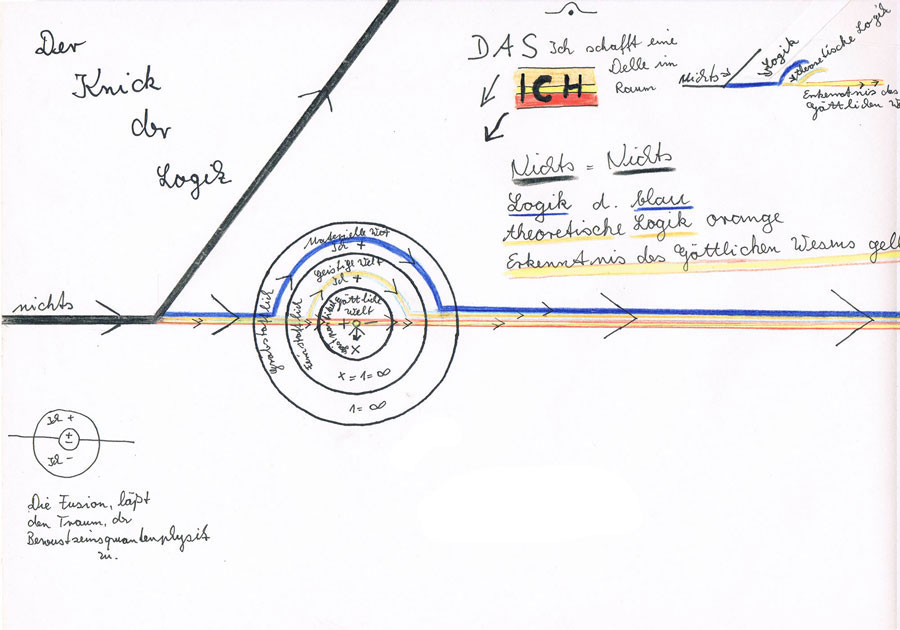 Der
Knick
der
Logik
DAS Ich schafft eine
Delle im
Raum
ICH
Nichts = Nichts
Logik d. blau
theoretische Logik orange
Erkenntnis des Göttlichen Wesens gelb
nichts
Logik
theoretische Logik
Erkenntnis des
Göttlichen We
nichts
Materielle Welt
Ich +
Geistige Welt
Ich +
göttliche
Welt
grobstofflich
feinstofflich
+ -
x
x = 1 = ∞
1 = ∞
Ich +
±
Ich -
Die Fusion, läßt
den Traum, der
Bewustseinsquantenphysik
zu.